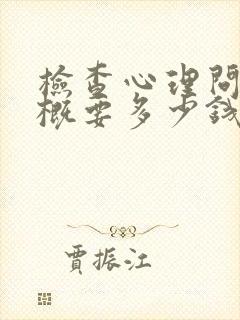 檢查心理問
概要多少錢
賈振江